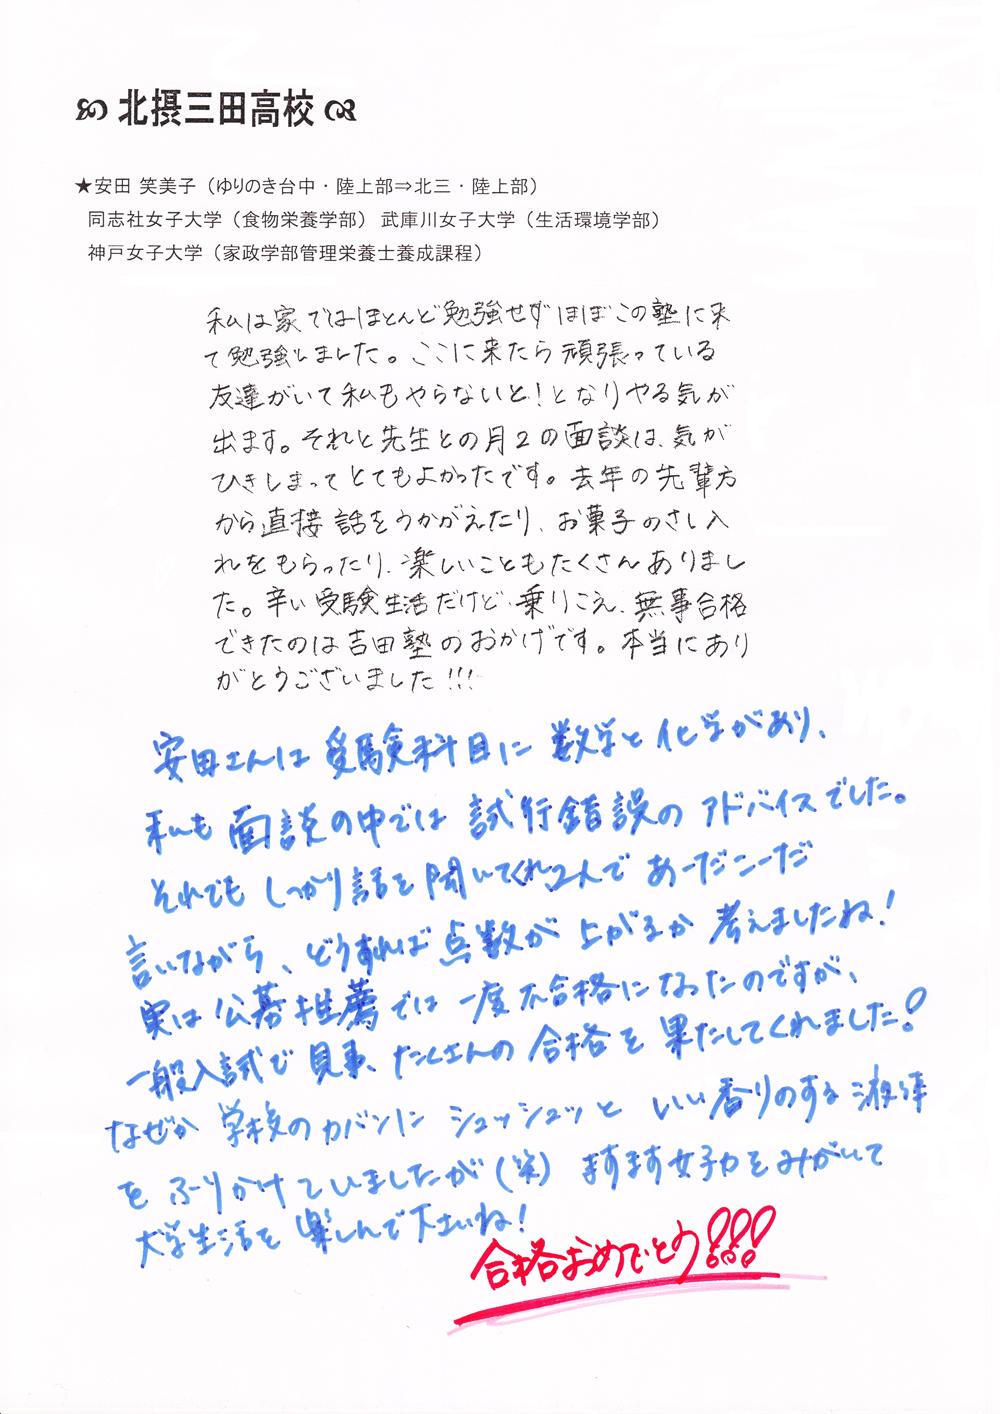 北摂三田高校
★安田 笑美子（ゆりのき台中・陸上部⇒北三・陸上部）
同志社女子大学（食物栄養学部） 武庫川女子大学（生活環境学部）
神戸女子大学（家政学部管理栄養士養成課程）
私は家ではほとんど勉強せずほぼこの塾に来
て勉強しました。ここに来たら頑張っている
友達がいて私もやらないと！となりやる気が
出ます。それと先生との月2の面談は、気が
ひきしまってとてもよかったです。去年の先輩方
から直接話をうかがえたり、お菓子のさし入
れをもらったり、楽しいこともたくさんありまし
た。辛い受験生活だけど、乗りこえ、無事合格
できたのは吉田塾のおかげです。本当にあり
がとうございました！！！
安田さんは受験科目に数学と化学があり、
私も面談の中では試行錯誤のアドバイスでした。
それでもしっかり話を聞いてくれ2人であーだこーだ
言いながら、どうすれば点数が上がるか考えましたね！
実は公募推薦では一度不合格になったのですが、
一般入試で見事、たくさんの合格を果たしてくれました！
なぜか学校のカバンにシュッシュッといい香りのする液体
をふりかけていましたが（笑）ますます女子力をみがいて
大学生活を楽しんで下さいね！
合格おめでとう！！！